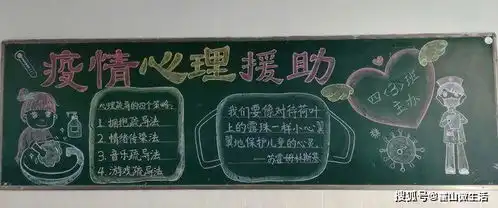 疫情心理援助
心理疏导的四个策略:
1. 拥抱疏导法
2. 情绪传染法
3. 音乐疏导法
4. 游戏疏导法
我们要像对待荷叶
上的露珠一样小心翼
翼地保护儿童的心灵。
——苏霍姆林斯基
四(3)班
主办
搜狐号@霍山微生活